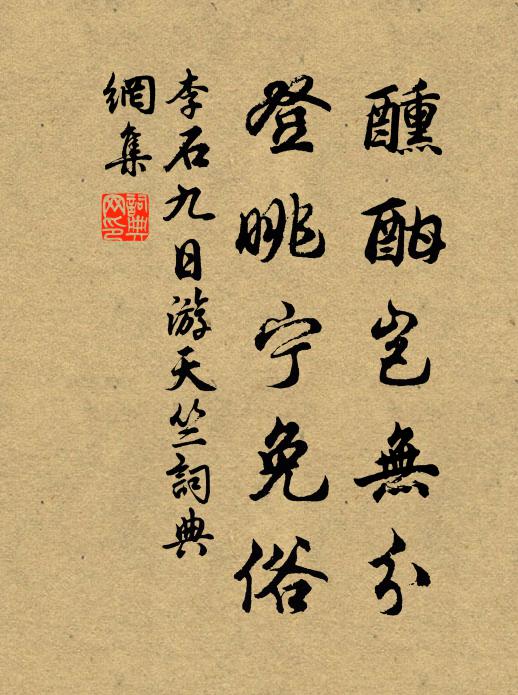 醺酣豈無分
登眺宁免俗
李石九日游天竺詞典
網集
詞典網印